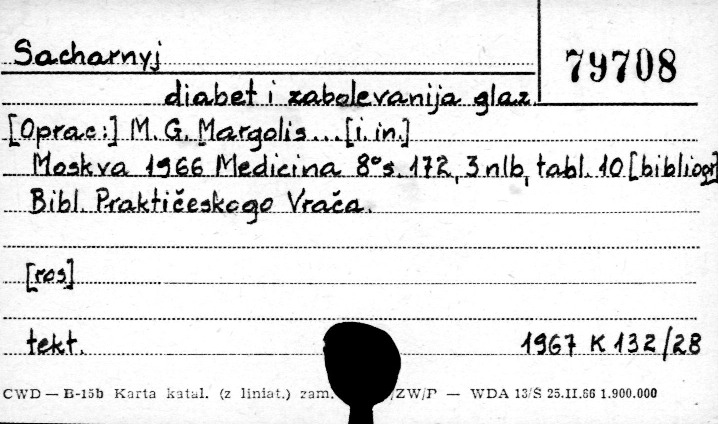 Sacharnyj
79708
diabet i zabolevanija glaz.
[Oprac:] M. G. Margolis... [i. in.]
Moskva 1966 Medicina 8° s. 172, 3 nlb, tabl. 10 [bibliogr]
Bibl. Praktičeskogo Vrača.
[ros]
tekt. 1967 K 132/28
CWD — B-15b Karta katal. (z liniat.) zam. /ZW/P — WDA 13/Ś 25.II.66 1.900.000